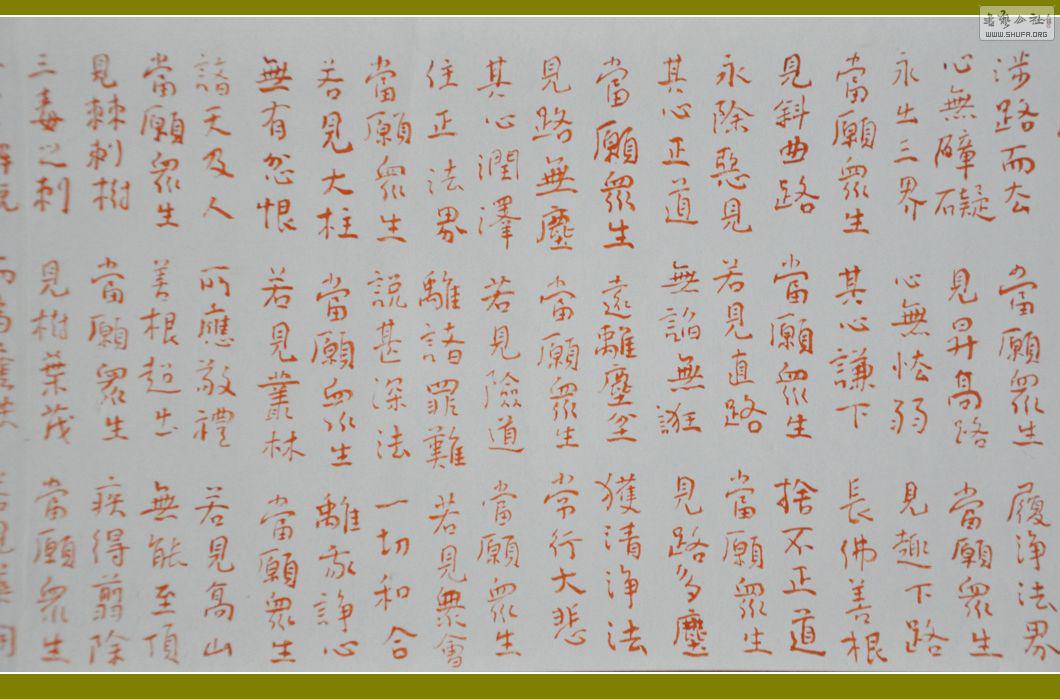 涉路而去 當願眾生 履淨法界
心無障礙 見昇高路 當願眾生
永出三界 心無怯弱 見趣下路
當願眾生 其心謙下 長佛善根
見斜曲路 當願眾生 捨不正道
永除惡見 若見直路 當願眾生
其心正道 無諂無誑 見路多塵
當願眾生 遠離塵坌 獲清淨法
見路無塵 當願眾生 常行大悲
其心潤澤 若見險道 當願眾生
住正法界 離諸罪難 若見眾會
當願眾生 說甚深法 一切和合
若見大柱 當願眾生 離我諍心
無有忿恨 若見叢林 當願眾生
諸天及人 所應敬禮 若見高山
當願眾生 善根超出 無能至頂
見棘刺樹 當願眾生 疾得翦除
三毒之刺 見樹葉茂 當願眾生
WWW.SHUFA.ORG